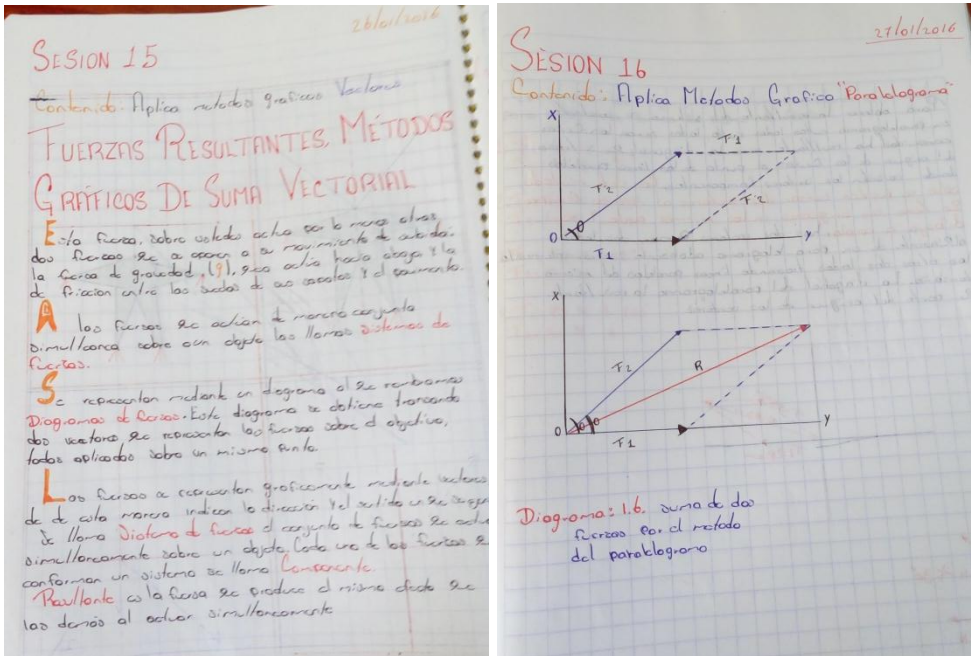 26/01/2016
SESION 15
Contenido: Aplica metodos graficos Vectores
FUERZAS RESULTANTES, MÉTODOS
GRÁFICOS DE SUMA VECTORIAL
Esta fuerza, sobre ustedes actua por lo menos otras
dos fuerzas qe a oponen a su movimiento de subida:
la fuerza de gravedad, (g), qe actúa hacia abajo y la
de friccion entre las suelas de sus zapatos y el pavimento.
A las fuerzas qe actúan de manera conjunta
simultanea sobre oun objeto las llamas sistemas de
fuerzas.
Se representan mediante un diagrama al qe nombramos
Diagramas de fuerzas. Este diagrama se obtiene trancando
dos vectores, qe representan las fuerzas sobre el objetivo,
todas aplicadas sobre un mismo punto.
Las fuerzas se representan graficamente mediante vectores
de de esta manera indican la dirección y el sentido en qe
Se llama Sistema de fuerzas el conjunto de fuerzas qe
simultaneamente sobre un objeto. Cada una de las fuerzas
conforman un sistema se llama Componente.
Resultante es la fuerza qe produce el mismo efecto qe
las demás al actuar simultaneamente
27/01/2016
SESION 16
Contenido: Aplica Metodos Grafico "Paralelograma"
X
F1
F2
F2
θ
0
F1
Y
X
F2
R
0
F1
Y
Diagrama: 1.6. suma de dos
fuerzas por el metodo
del paralelogramo